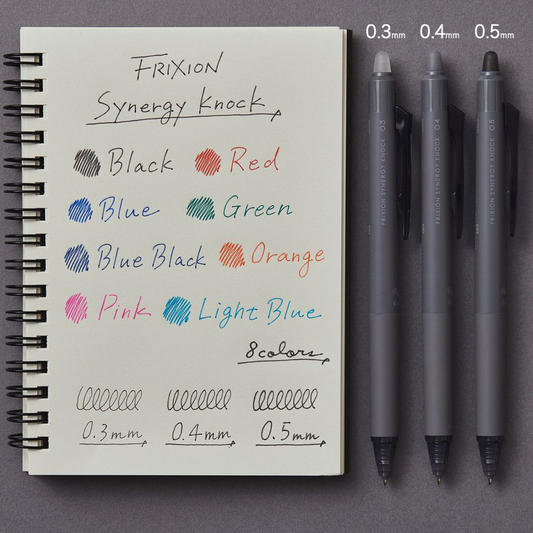 FRIXION
Synergy Knock
Black Red
Blue Green
Blue Black Orange
Pink Light Blue
8colors
0.3mm 0.4mm 0.5mm
0.3mm 0.4mm 0.5mm
FRIXION SYNERGY KNOCK 03
FRIXION SYNERGY KNOCK 04
FRIXION SYNERGY KNOCK 05